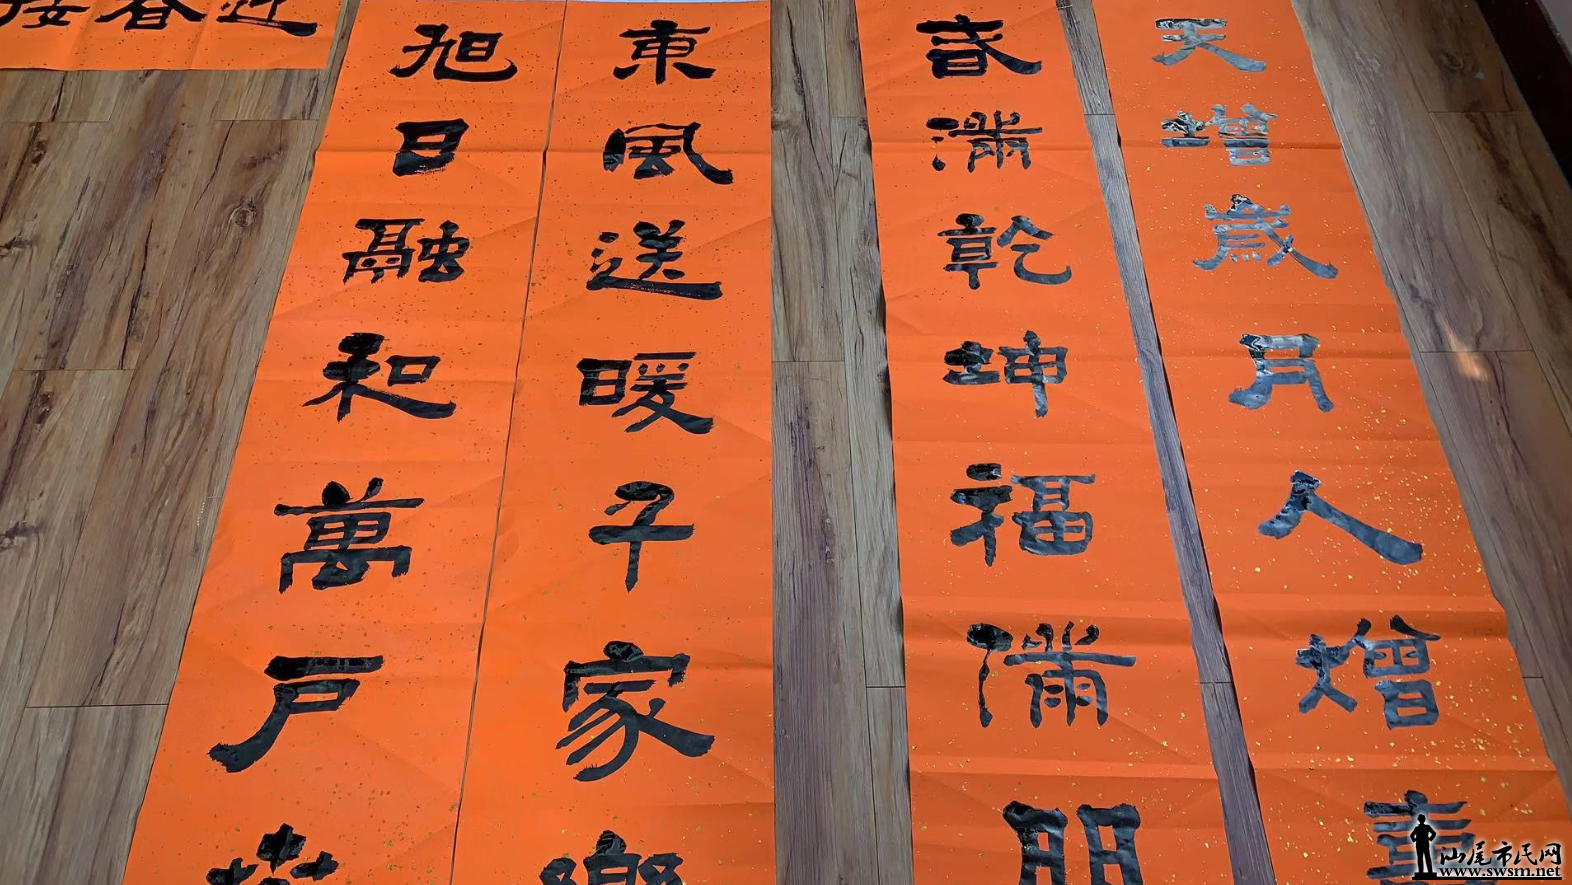 天增歲月人增壽
春滿乾坤福滿門
東風送暖千家樂
旭日融和萬戶
迎春接
汕尾市民网
www.swsm.net